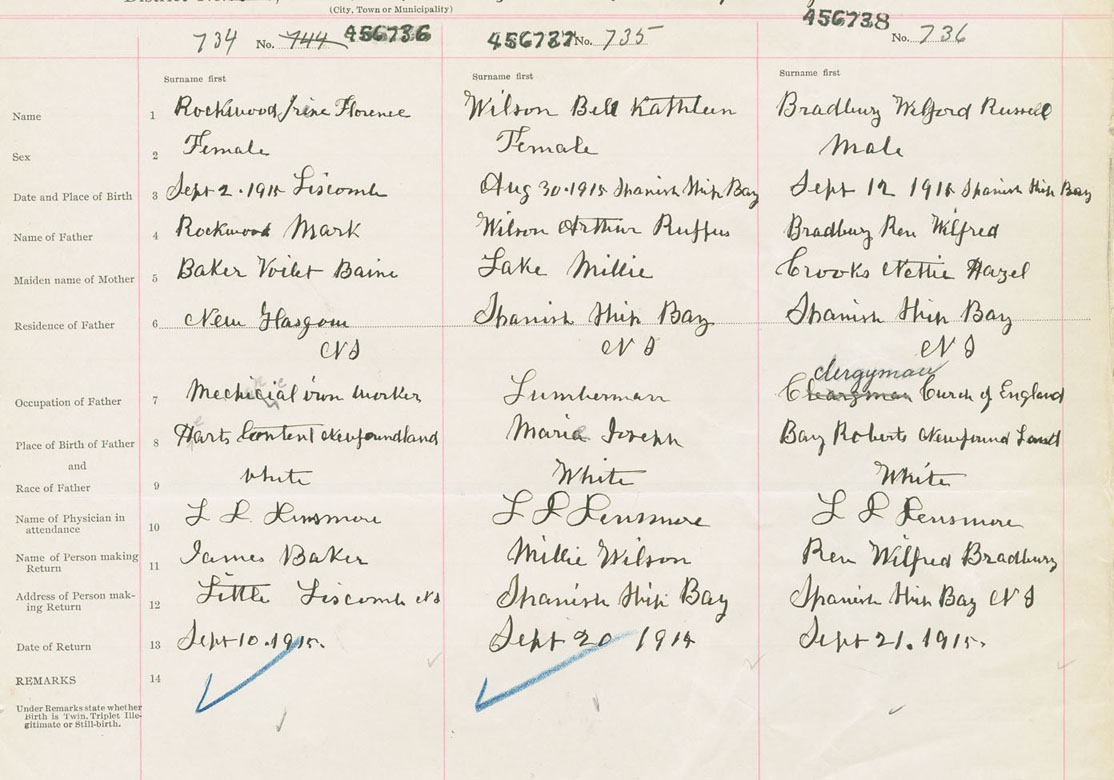 (City, Town or Municipality)
734 No. 744 456736
456737 No. 735
456738 No. 736
Surname first
Surname first
Surname first
Name 1 Rockwood Irine Florence Wilson Bell Kathleen Bradbury Welford Russell
Sex 2 Female Female Male
Date and Place of Birth 3 Sept 2. 1915 Liscomb Aug 30. 1915 Spanish Ship Bay Sept 12 1915 Spanish Ship Bay
Name of Father 4 Rockwood Mark Wilson Arthur Ruffus Bradbury Rev Wilfred
Maiden name of Mother 5 Baker Voilet Baine Lake Millie Crooks Nettie Hazel
Residence of Father 6 New Glasgow Spanish Ship Bay Spanish Ship Bay
NS NS NS
clergyman
Occupation of Father 7 iron worker Lumberman Church of England
Place of Birth of Father 8 Harts Content Newfoundland Marie Joseph Bay Roberts Newfound Land
and
Race of Father 9 white White White
Name of Physician in
attendance 10 L L Densmore L L Densmore
Name of Person making
Return 11 James Baker Millie Wilson Rev Wilfred Bradbury
Address of Person mak-
ing Return 12 Little Liscomb NS Spanish Ship Bay Spanish Ship Bay NS
Date of Return 13 Sept 10. 1915. Sept 20 1915 Sept 21. 1915.
REMARKS 14
Under Remarks state whether
Birth is Twin, Triplet Ille-
gitimate or Still-birth.